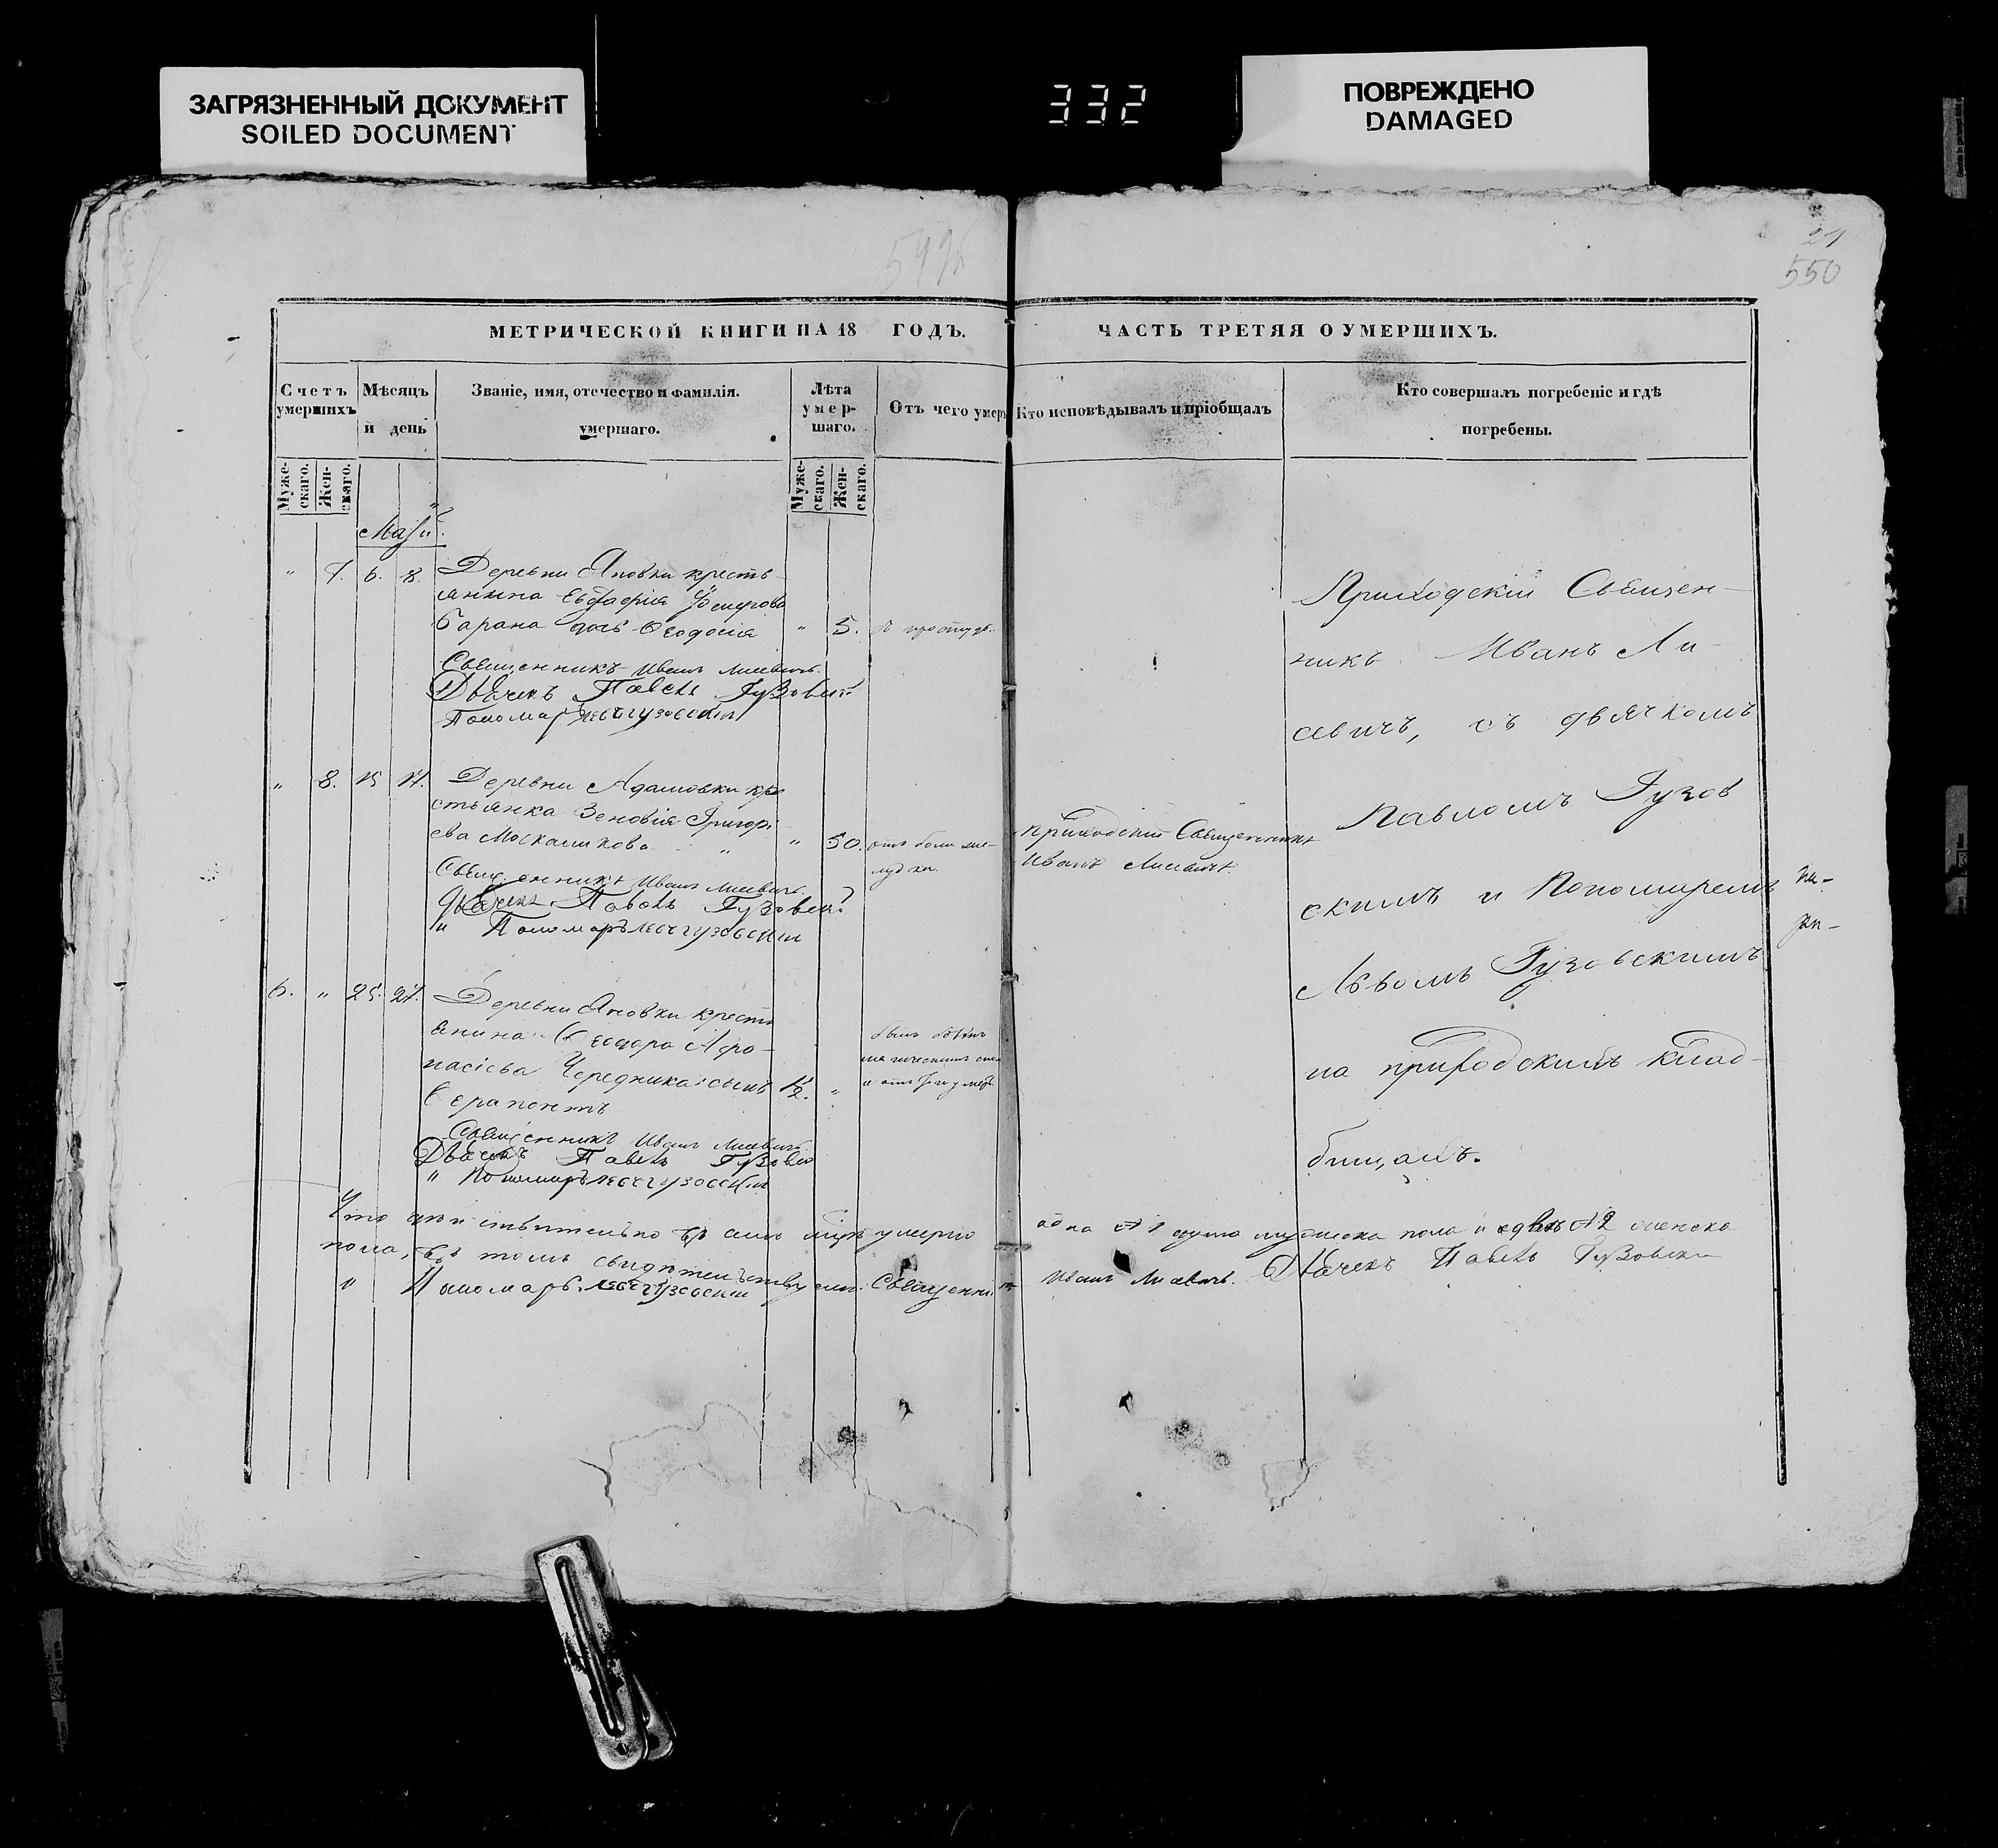 ЗАГРЯЗНЕННЫЙ ДОКУМЕНТ
SOILED DOCUMENT
332
ПОВРЕЖДЕНО
DAMAGED
21
550
МЕТРИЧЕСКОЙ КНИГИ НА 18 ГОДЪ.
ЧАСТЬ ТРЕТЯЯ О УМЕРШИХЪ.
Счетъ умершихъ
Мѣсяцъ и день
Званіе, имя, отечество и фамилія.
умершаго.
Лѣта умер-шаго.
Отъ чего умеръ
Кто исповѣдывалъ и пріобщалъ
Кто совершалъ погребеніе и гдѣ
погребены.
Муже-скаго.
Жен-скаго.
Муже-скаго.
Жен-скаго.
" 7. 6. 8. Деревни Яновки кресть-
янина
Барана дочь Ѳеодосія " 5.
Священникъ Иванъ Лисевичъ.
Дьячекъ Павелъ Гузовскій
Пономарь Левъ Гузовскій
" 8. 15 17. Деревни Адамовки кре
стьянка Зеновія Григорі-
ева " 50. отъ боли же-
лудка.
Приходскій Священникъ
Иванъ Лисевичъ.
Священникъ Иванъ Лисевичъ.
Дьячекъ Павелъ Гузовскій
и Пономарь Левъ Гузовскій
6. " 25. 27. Деревни Яновки кресть
янина Ѳеодора Афа-
насіева Чередника сынъ 12. "
Ферапонтъ
Священникъ Иванъ Лисевичъ
Дьячекъ Павелъ Гузовскій
" Пономарь Левъ Гузовскій
Приходскій Священ-
никъ Иванъ Ли-
севичъ, съ дьячкомъ
Павломъ Гузов
скимъ и Пономаремъ
Львомъ Гузовскимъ
на приходскихъ клад-
бищахъ.
Что дѣйствительно въ семъ умерло одна № 1 душа мужеска пола и двѣ № 2 женска
пола, въ томъ свидѣтельствуемъ. Священникъ Иванъ Лисевичъ. Дьячекъ Павелъ Гузовскій
" Пономарь Левъ Гузовскій